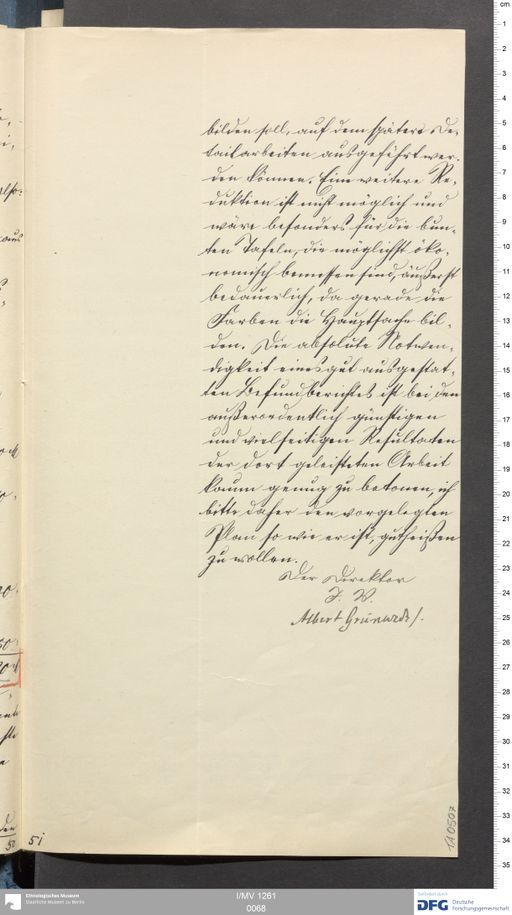 bilden soll, auf dem spätere De-
tailarbeiten ausgeführt wer-
den können. Eine weitere Re-
duktion ist nicht möglich und
wäre besonders für die bun-
ten Tafeln, die möglichst öko-
nomisch bemessen sind, äußerst
bedauerlich, da gerade die
Farben die Hauptsache bil-
den. Die absolute Notwen-
digkeit eines gut ausgestat-
ten Befundberichtes ist bei den
außerordentlich günstigen
und vielseitigen Resultaten
der dort geleisteten Arbeit
kaum genug zu betonen, ich
bitte daher den vorgelegten
Plan so wie er ist, gutheißen
zu wollen.
Der Direktor
I. V.
Albert Grünwedel.
51
1A 0507
Ethnologisches Museum
Staatliche Museen zu Berlin
I/MV 1261
0068
DFG Deutsche
Forschungsgemeinschaft
cm
1
2
3
4
5
6
7
8
9
10
11
12
13
14
15
16
17
18
19
20
21
22
23
24
25
26
27
28
29
30
31
32
33
34
35